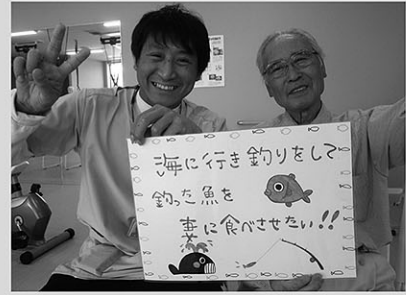 海に行き釣りをして
釣った魚を
妻に食べさせたい!!